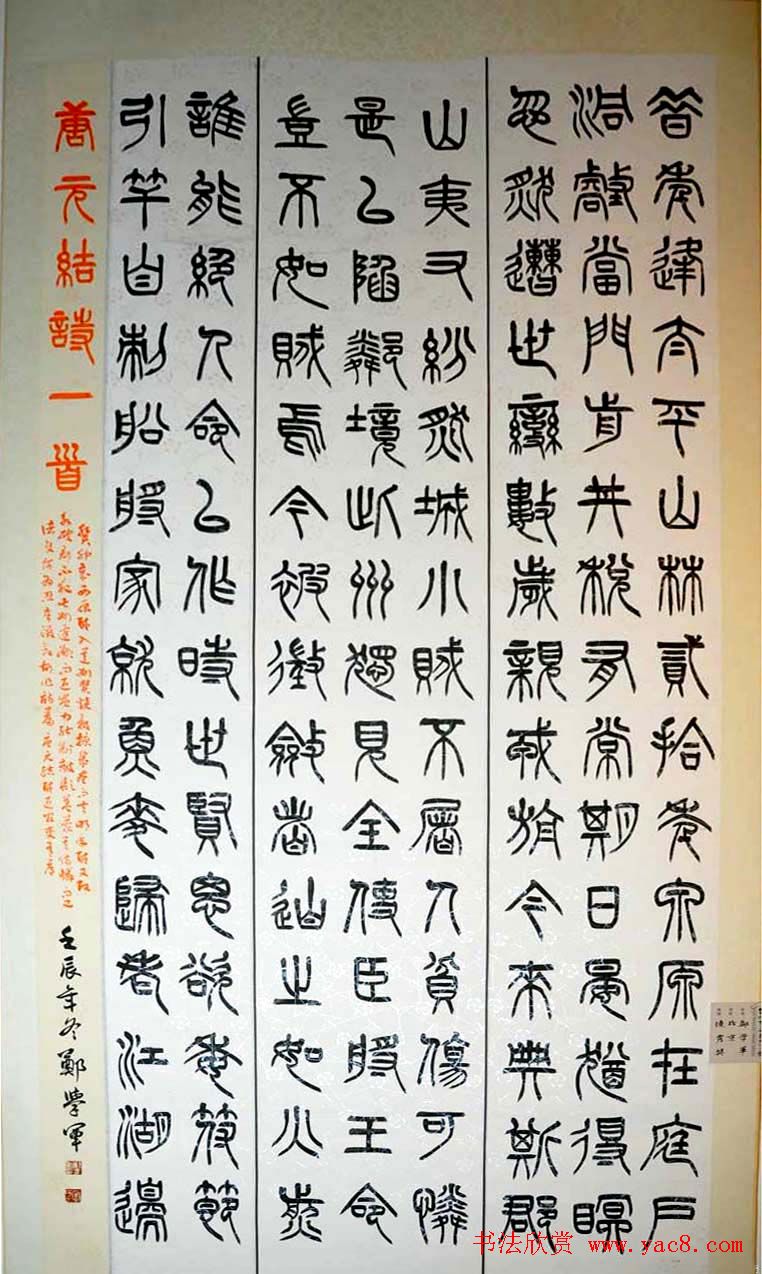 昔年逢太平山林貳拾年泉源在庭戶
洞壑當門前井稅有常期日晏猶得瞑
忽然遭世變數歲親戎旃今來典斯郡
山夷又紛然城小賊不屠人貧傷可憐
是以陷鄰境此州獨見全使臣將王命
豈不如賊焉今被徵斂者迫之如火煎
誰能絕人命以作時世賢思欲委符節
引竿自刺船將家就魚麥歸老江湖邊
唐元結詩一首
壬辰年冬鄭學軍
书法欣赏 www.yac8.com